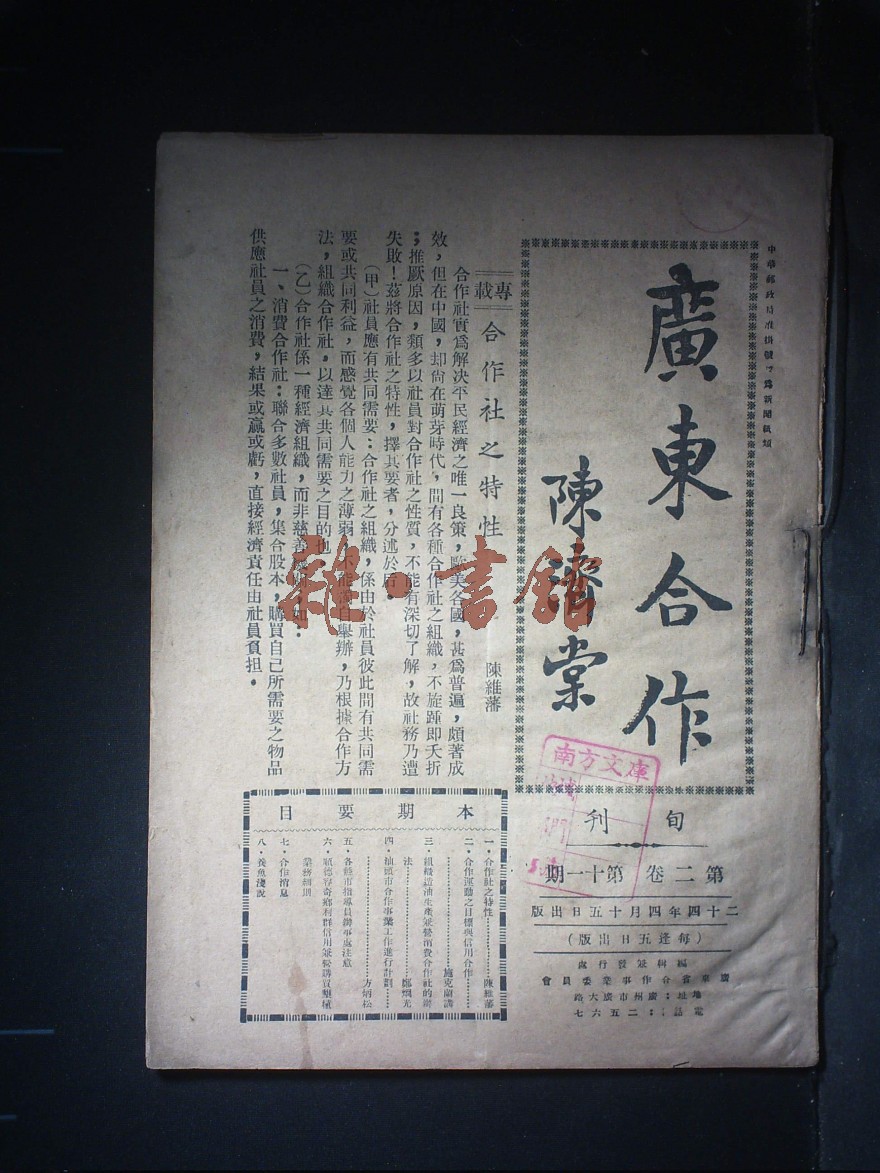 中華郵政局准掛號認爲新聞紙類
廣東合作
陳濟棠
旬刊
第二卷第十一期
二十四年四月十五日出版
(每逢五日出版)
編輯兼發行處
廣東省合作事業委員會
地址:廣州市廣大路
電話:一二五六七
南方文庫
專載
合作社之特性
陳維藩
合作社實爲解決平民經濟之唯一良策,歐美各國,甚爲普遍,頗著成
效,但在中國,却尚在萌芽時代,間有各種合作社之組織,不旋踵即夭折
;推厥原因,類多以社員對合作社之性質,不能有深切了解,故社務乃遭
失敗!茲將合作社之特性,擇其要者,分述於后
(甲)社員應有共同需要:合作社之組織,係由於社員彼此間有共同需
要或共同利益,而感覺各個人能力之薄弱,不能獨自舉辦,乃根據合作方
法,組織合作社,以達其共同需要之目的也
(乙)合作社係一種經濟組織,而非慈善機關,如:
一、消費合作社:聯合多數社員,集合股本,購買自己所需要之物品
供應社員之消費,結果或贏或虧,直接經濟責任由社員負担。
本期要目
一・合作社之特性⋯⋯陳維藩
二・合作運動之目標與信用合作⋯⋯
施克蘭講
三・組織造油生產兼營消費合作社的辦
法⋯⋯鄭熾光
四・汕頭市合作事業工作進行計劃⋯⋯
⋯⋯方炳松
五・各縣市指導員辦事處注意
六・順德容奇鄉利群信用兼營購買墾殖
業務細則
七・合作消息
八・養魚淺說
雜・書館